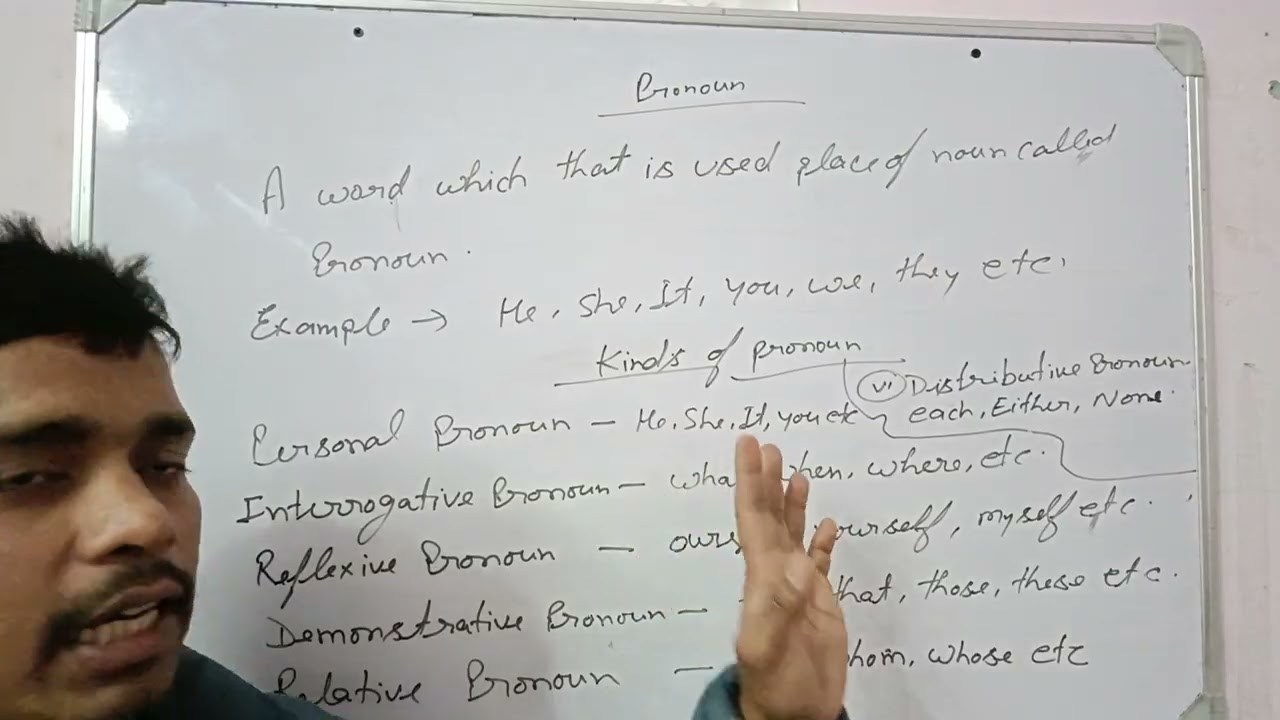 Pronoun
A word which that is used place of noun called
Pronoun.
Example → He, She, It, you, we, they etc.
Kinds of pronoun
Personal Pronoun – He, She, It, you etc
(vi) Distributive Pronoun
each, Either, None.
Interrogative Pronoun – when, where, etc.
Reflexive Pronoun – myself etc.
Demonstrative Pronoun – that, those, these etc.
Relative Pronoun – whose etc